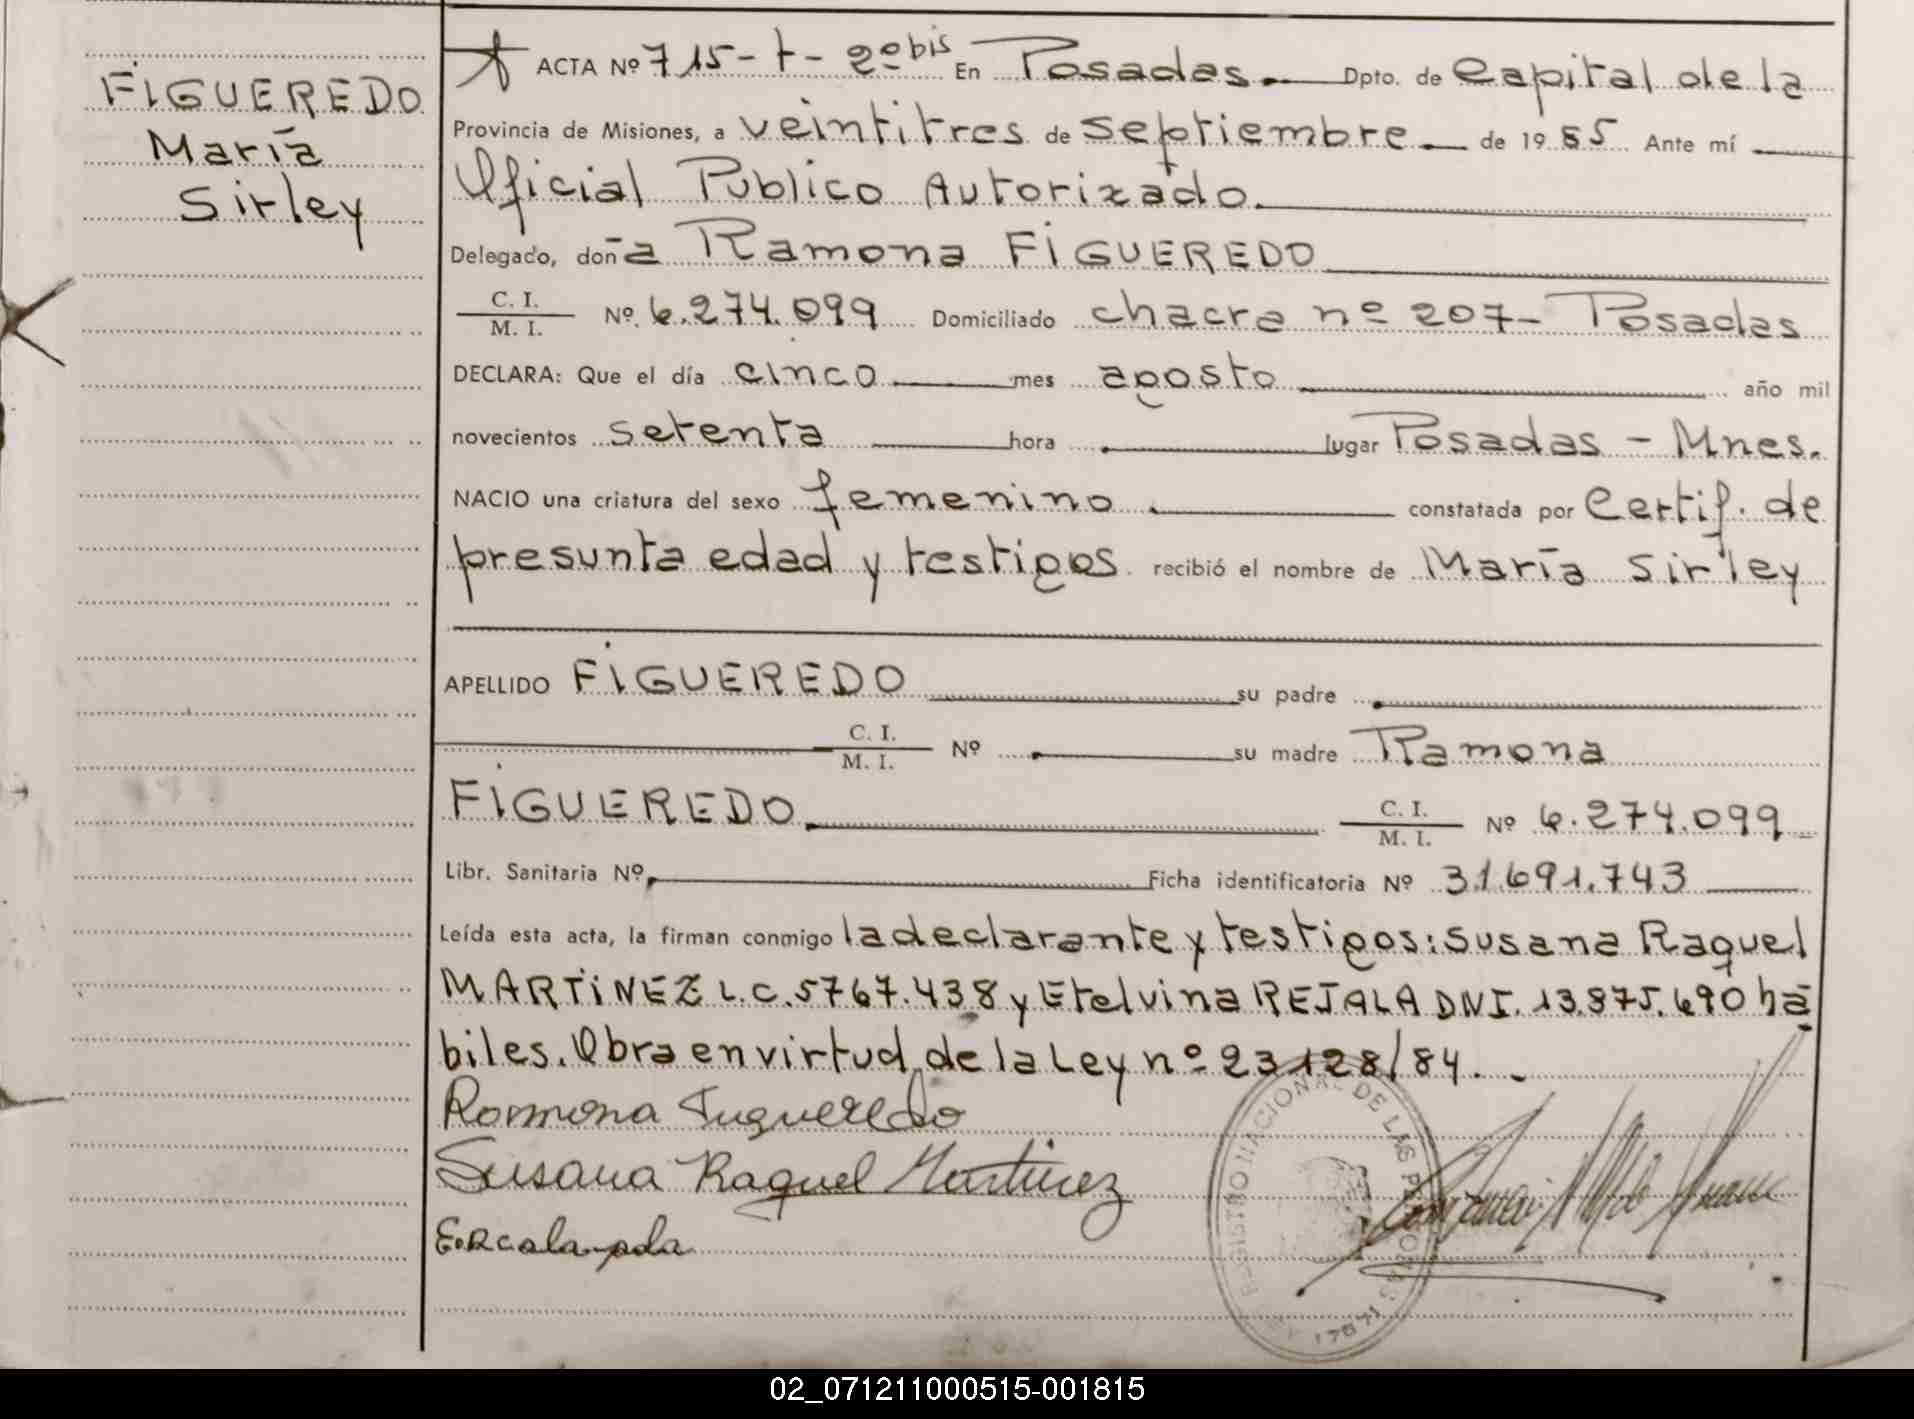 FIGUEREDO
María
Sirley
ACTA Nº 715-t-2º bis En Posadas. Dpto. de Capital de la
Provincia de Misiones, a veintitres de septiembre de 1985 Ante mí
Oficial Publico Autorizado.
Delegado, doña Ramona FIGUEREDO
C. I.
M. I. Nº 6.274.099 Domiciliado chacra nº 207- Posadas
DECLARA: Que el día cinco mes agosto año mil
novecientos setenta hora lugar Posadas - Mnes.
NACIO una criatura del sexo femenino constatada por Certif. de
presunta edad y testigos recibió el nombre de María Sirley
APELLIDO FIGUEREDO su padre
C. I.
M. I. Nº su madre Ramona
FIGUEREDO. C. I.
M. I. Nº 6.274.099
Libr. Sanitaria Nº Ficha identificatoria Nº 31.691.743
Leída esta acta, la firman conmigo la declarante y testigos: Susana Raquel
MARTINEZ L.C. 5767.438 y Etelvina REJALA DNI. 13.875.690 há
biles. Obra en virtud de la Ley nº 23128/84.
Ramona Figueredo
Susana Raquel Martinez
REGISTRO NACIONAL DE LAS PERSONAS
02_071211000515-001815